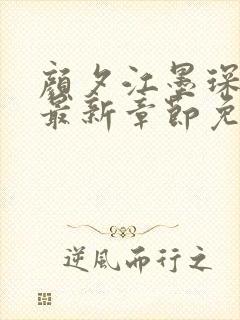 顔夕江墨琛
最新章節免
逆風而行之